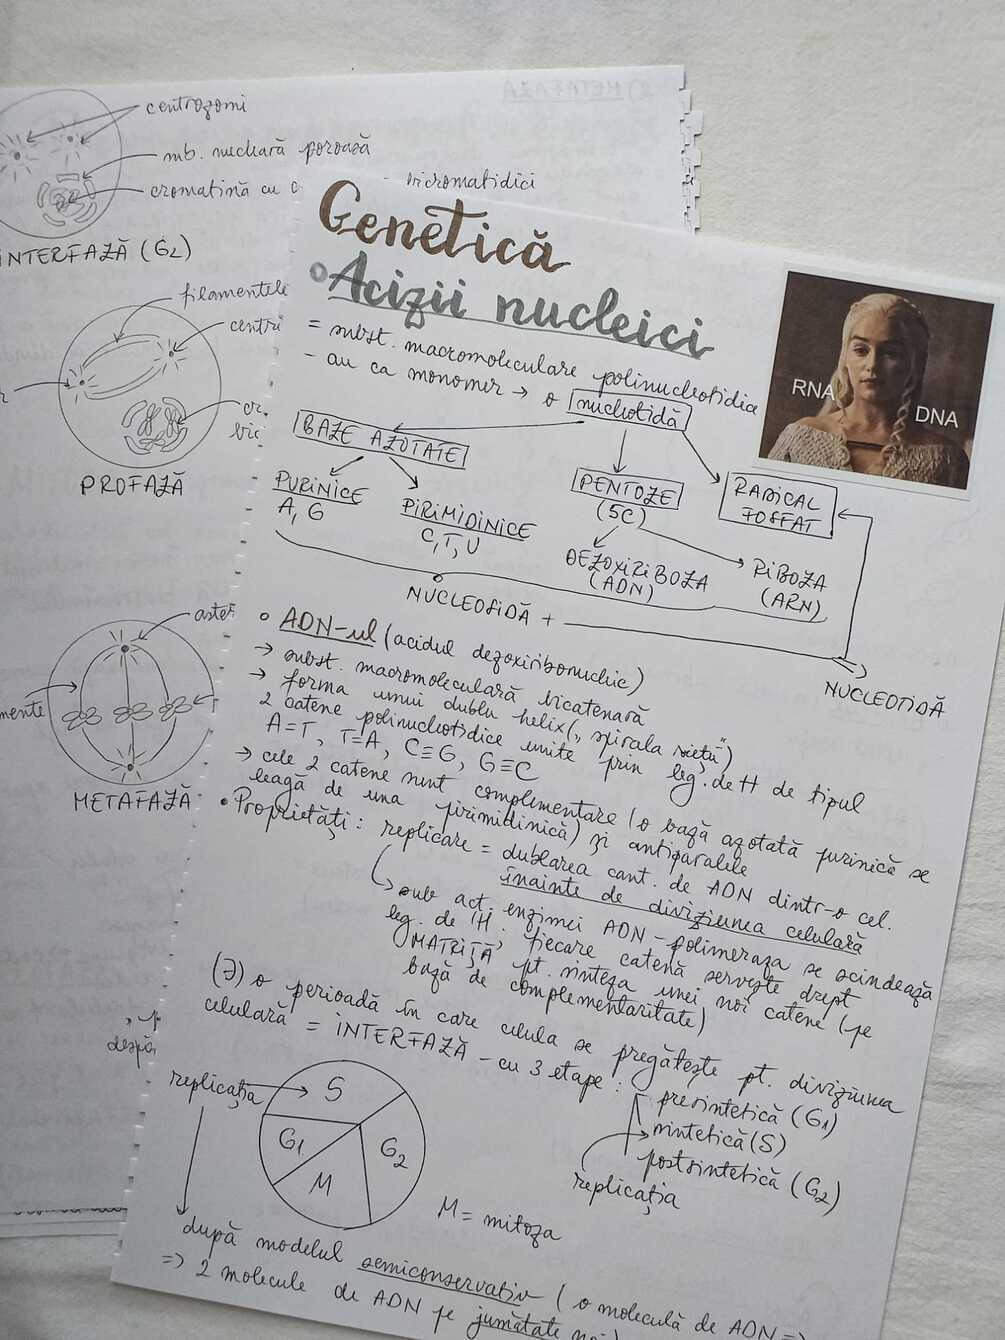 centrozomi
mb. nucleară poroasă
cromatină cu c
bicromatidici
INTERFAZĂ (G2)
filamentele
centri
cr
bic
PROFAZĂ
aster
mente
METAFAZĂ
2) METAFAZA
Genetică
Acizii nucleici
= subst. macromoleculare polinucleotidice
- au ca monomer → o nucleotidă
RNA
DNA
BAZE AZOTATE
PENTOZE
(5C)
RADICAL
FOSFAT
PURINICE
A, G
PIRIMIDINICE
C, T, U
DEZOXIRIBOZA
(ADN)
RIBOZA
(ARN)
NUCLEOSIDĂ +
NUCLEOTIDĂ
ADN-ul (acidul dezoxiribonucleic)
→ subst. macromoleculară bicatenară
→ forma unui dublu helix („ spirala vieții")
2 catene polinucleotidice unite prin leg. de H de tipul
A=T, T=A, C≡G, G≡C
→ cele 2 catene sunt complementare (o bază azotată purinică se
leagă de una pirimidinică) și antiparalele
• Proprietăți: replicare = dublarea cant. de ADN dintr-o cel.
înainte de diviziunea celulară
→ sub acț. enzimei ADN-polimeraza se scindează
leg. de H; fiecare catenă servește drept
MATRIȚĂ pt. sinteza unei noi catene (pe
bază de complementaritate)
(∃) o perioadă în care celula se pregătește pt. diviziunea
celulară = INTERFAZĂ - cu 3 etape:
presintetică (G1)
sintetică (S)
postsintetică (G2)
replicația
replicația
S
G1
G2
M
M = mitoza
după modelul semiconservativ (o moleculă de ADN =>
=> 2 molecule de ADN pe jumătate noi)